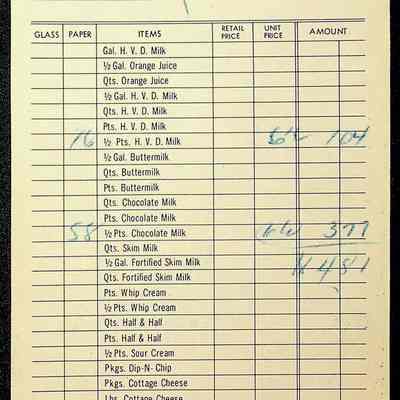 GLASS PAPER ITEMS RETAIL PRICE UNIT PRICE AMOUNT
Gal. H. V. D. Milk
½ Gal. Orange Juice
Qts. Orange Juice
½ Gal. H. V. D. Milk
Qts. H. V. D. Milk
Pts. H. V. D. Milk
16 ½ Pts. H. V. D. Milk 104
½ Gal. Buttermilk
Qts. Buttermilk
Pts. Buttermilk
Qts. Chocolate Milk
Pts. Chocolate Milk
58 ½ Pts. Chocolate Milk 377
Qts. Skim Milk
½ Gal. Fortified Skim Milk 481
Qts. Fortified Skim Milk
Pts. Whip Cream
½ Pts. Whip Cream
Qts. Half & Half
Pts. Half & Half
½ Pts. Sour Cream
Pkgs. Dip-N-Chip
Pkgs. Cottage Cheese
Lbs. Cottage Cheese